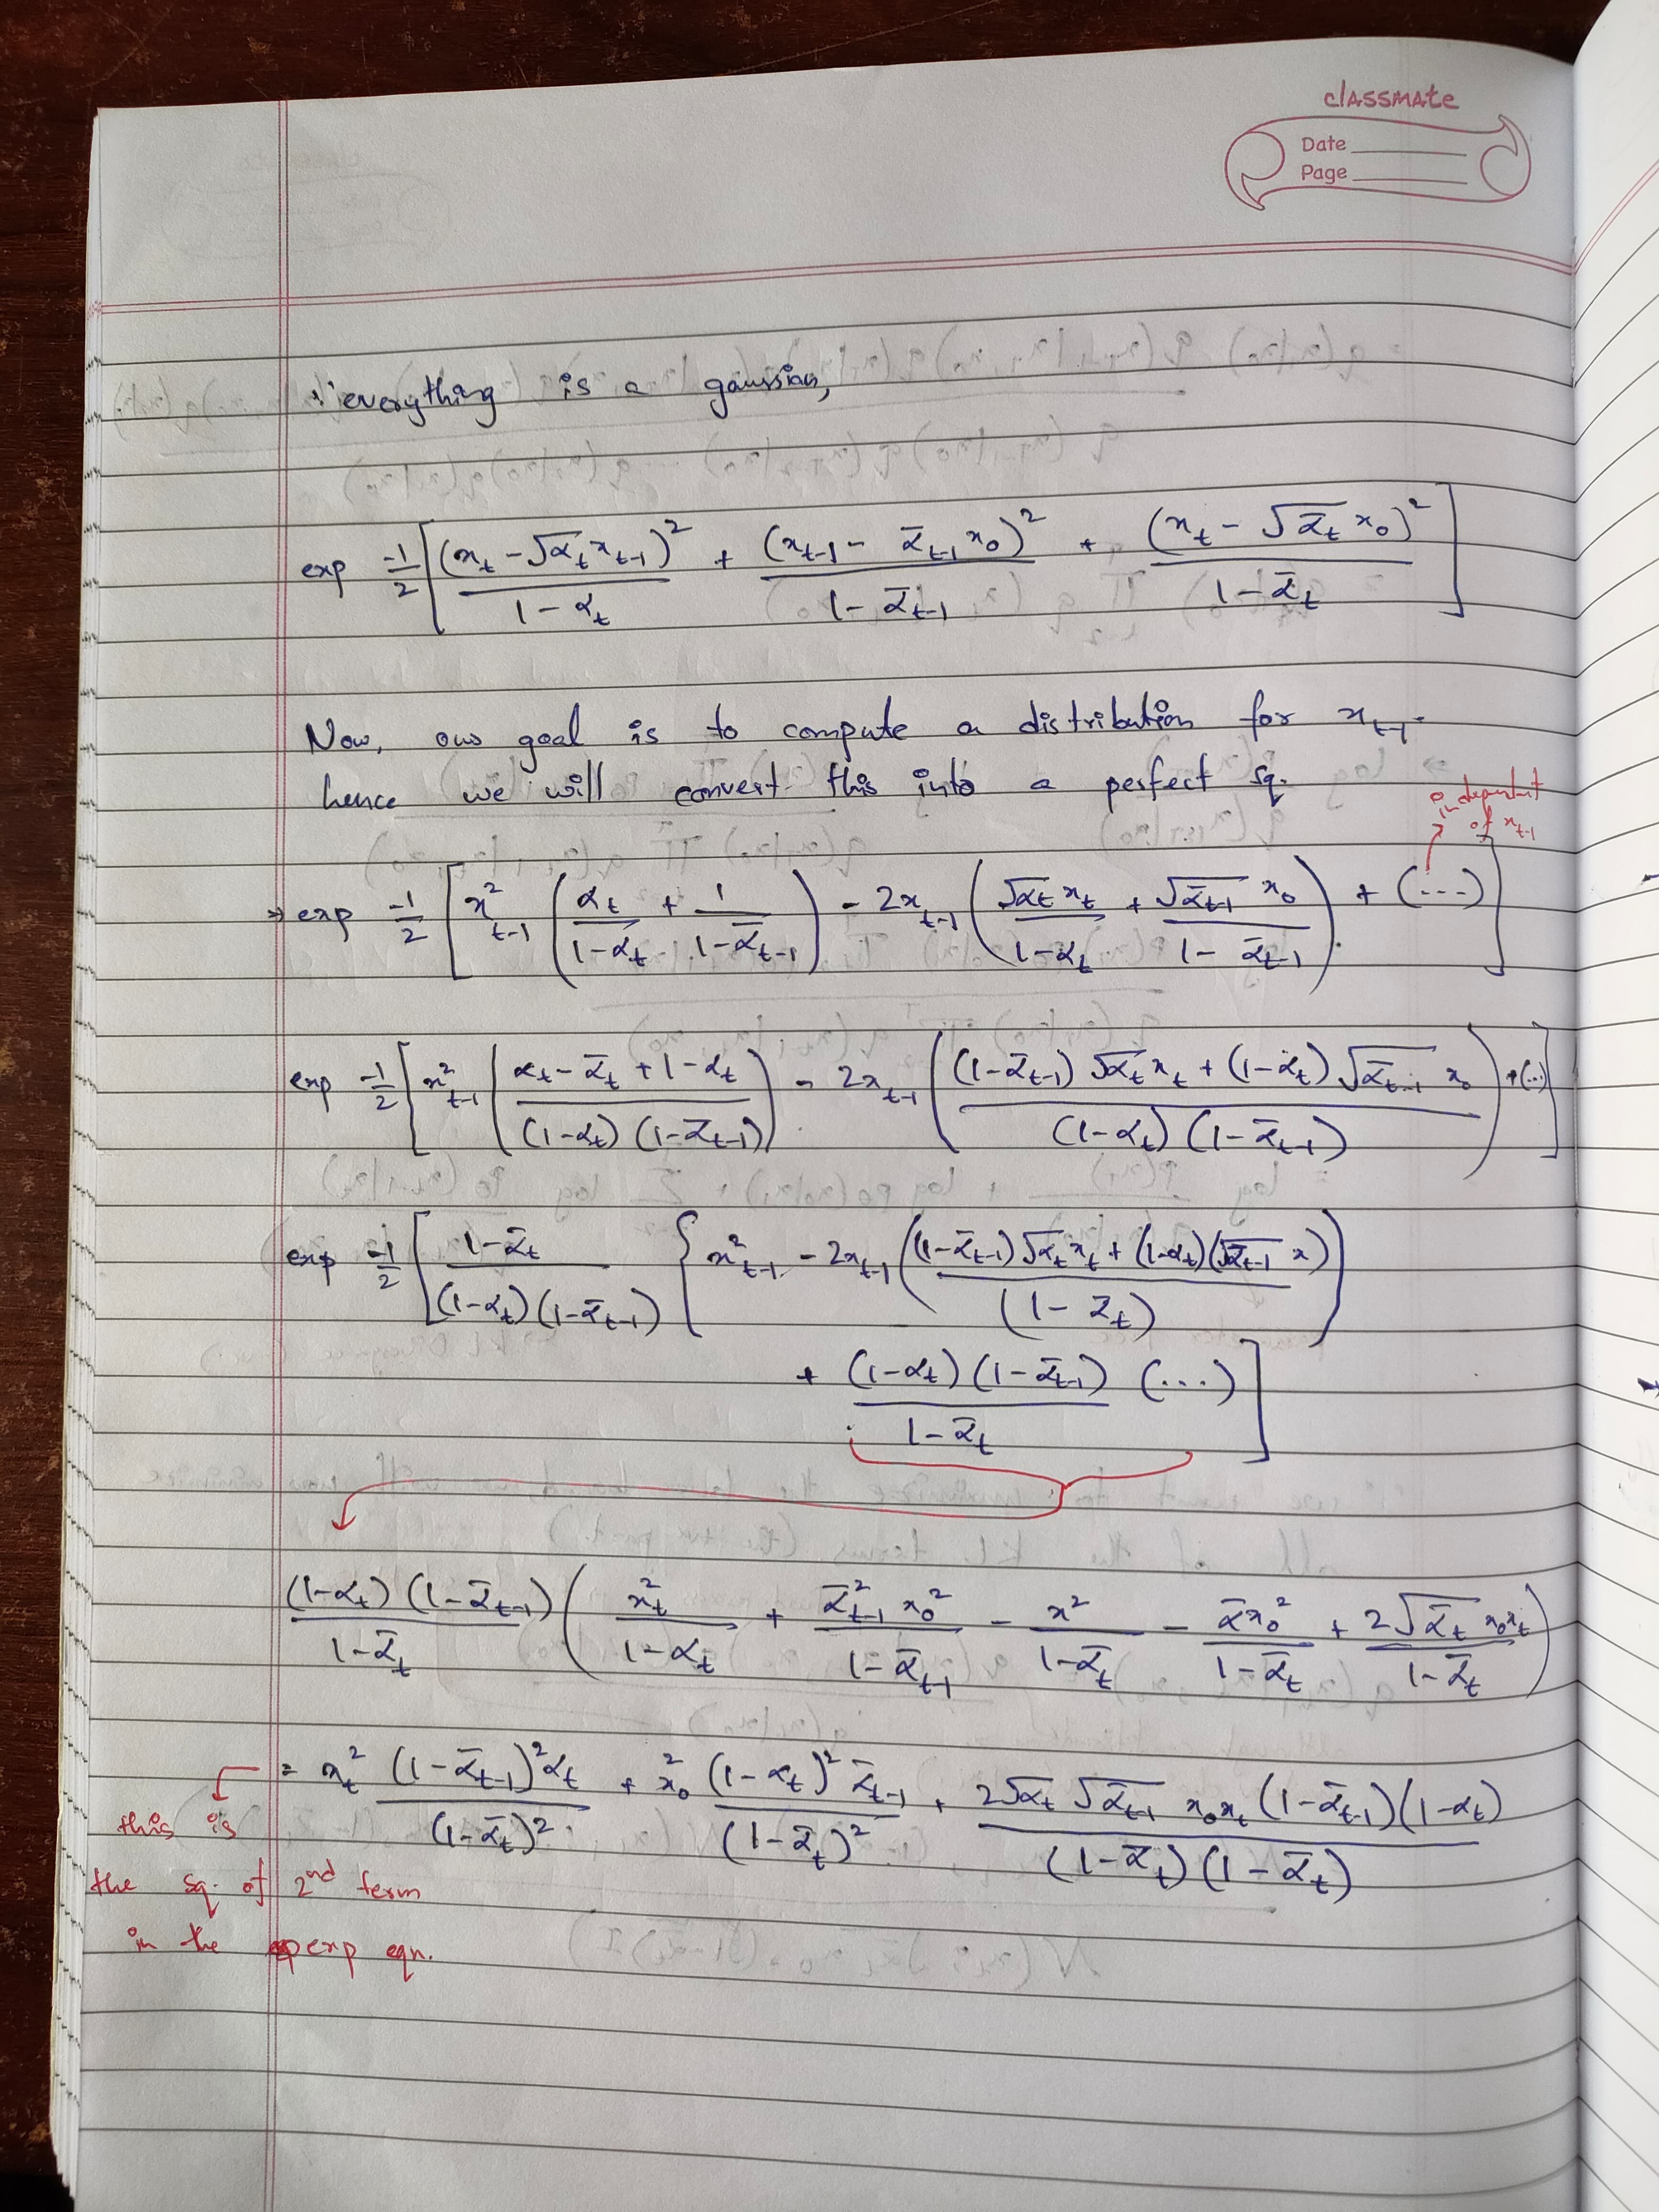 classmate
Date
Page
∵ everything is a gaussian,
exp -1/2 [ (x_t - √α_t x_{t-1})² / (1 - α_t) + (x_{t-1} - ᾱ_{t-1} x_0)² / (1 - ᾱ_{t-1}) + (x_t - √ᾱ_t x_0)² / (1 - ᾱ_t) ]
Now, our goal is to compute a distribution for x_{t-1}.
hence we will convert this into a perfect sq.
independent
of x_{t-1}
⇒ exp -1/2 [ x²_{t-1} ( α_t / (1-α_t) + 1 / (1-ᾱ_{t-1}) ) - 2x_{t-1} ( √α_t x_t / (1-α_t) + √ᾱ_{t-1} x_0 / (1-ᾱ_{t-1}) ) + (...) ]
exp -1/2 [ x²_{t-1} ( (α_t - ᾱ_t + 1 - α_t) / ((1-α_t)(1-ᾱ_{t-1})) ) - 2x_{t-1} ( ((1-ᾱ_{t-1}) √α_t x_t + (1-α_t) √ᾱ_{t-1} x_0) / ((1-α_t)(1-ᾱ_{t-1})) ) + (...) ]
exp -1/2 [ (1-ᾱ_t) / ((1-α_t)(1-ᾱ_{t-1})) { x²_{t-1} - 2x_{t-1} ( ((1-ᾱ_{t-1}) √α_t x_t + (1-α_t)(√ᾱ_{t-1} x) / (1-ᾱ_t) )
+ (1-α_t)(1-ᾱ_{t-1}) / (1-ᾱ_t) (...) ]
(1-α_t)(1-ᾱ_{t-1}) / (1-ᾱ_t) ( x_t² / (1-α_t) + ᾱ²_{t-1} x_0² / (1-ᾱ_{t-1}) - x² / (1-ᾱ_t) - ᾱx_0² / (1-ᾱ_t) + 2√ᾱ_t x_0x_t / (1-ᾱ_t) )
= x_t² (1-ᾱ_{t-1})²α_t / (1-ᾱ_t)² + x_0² (1-α_t)² ᾱ_{t-1} / (1-ᾱ_t)² + 2√α_t √ᾱ_{t-1} x_0x_t (1-ᾱ_{t-1})(1-α_t) / ((1-ᾱ_t)(1-ᾱ_t))
this is
the sq. of 2nd term
in the exp eqn.